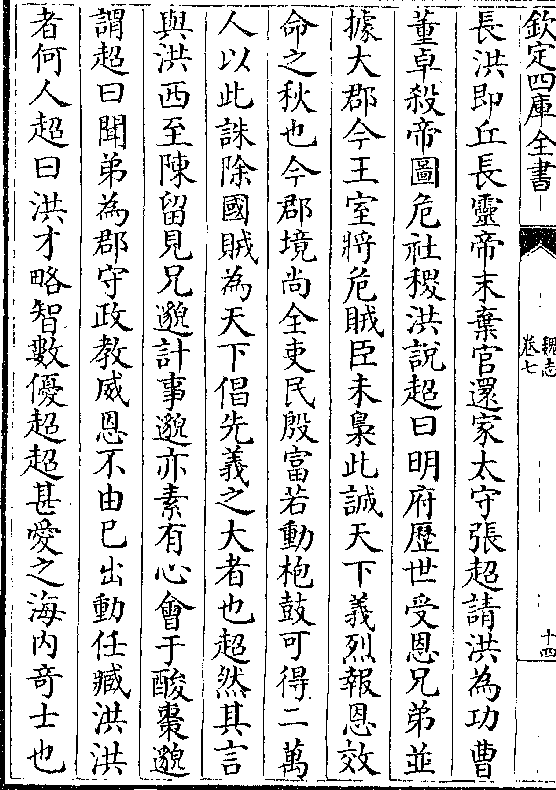 欽定四庫全書
魏志
卷七
十四
長洪即丘長靈帝末棄官還家太守張超請洪為功曹
董卓殺帝圖危社稷洪說超曰明府歷世受恩兄弟並
據大郡今王室將危賊臣未梟此誠天下義烈報恩效
命之秋也今郡境尚全吏民殷富若動枹鼓可得二萬
人以此誅除國賊為天下倡先義之大者也超然其言
與洪西至陳留見兄邈計事邈亦素有心會于酸棗邈
謂超曰聞弟為郡守政教威恩不由已出動任臧洪洪
者何人超曰洪才略智數優超超甚愛之海內奇士也